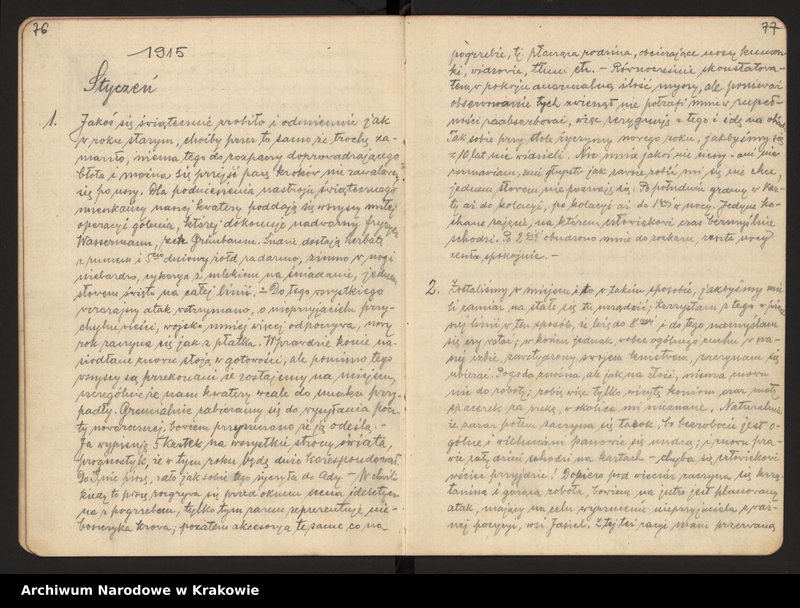 76
1915
Styczeń
1. Jakoś się świątecznie zrobiło i odmiennie jak
w roku starym, choćby przez to samo że trochę za-
marzło, niema tego do rozpaczy doprowadzającego
błota i można się przejść parę kroków nie zawalawszy
się po uszy. Dla podniesienia nastroju świątecznego
mieszkańcy naszej kwatery poddają się wszyscy miłej
operacyi golenia, której dokonuje nadworny fryzyer
Wassermann, Grünbaum. Żołnierze dostają herbatę
z rumem i 5cio dniowy żołd za darmo, zimno w nogi
niebardzo, cykorya z mlekiem na śniadanie, jednem
słowem święto na całej linii. - Do tego wszystkiego
wczorajszy atak wstrzymano, o nieprzyjacielu przy-
chylne wieści, wojsko mniej więcej odpoczywa, nowy
rok zaczyna się jak z płatka. Wprawdzie konie na-
siodłane znowu stoją w gotowości, ale pomimo tego
wszyscy są przekonani że zostajemy na miejscu,
szczególnie że nam kwatery wcale do smaku przy-
padły. Gremialnie zabieramy się do wysyłania pocz-
ty noworocznej, bowiem przyrzeczono że ją odeślą. -
Ja wypisuję 5 kartek na wszystkie strony świata,
prognostyk, że w tym roku będę dużo korespondował.
Do nie piszę, żało jak sobie tego życzyła do Ady - W chwili
kiedy to piszę rozgrywa się przed oknem scena identycz-
na z pogrzebem, tylko tym razem reprezentuje nie-
boszczyka krowa; pozatem akcesorya te same co na
77
pogrzebie, tj płacząca rodzina, obcierające nosy kumosz-
ki, widzowie, tłum etc. - Równocześnie skonstatowa-
łem w pokoju anormalną ilość myszy, ale ponieważ
obserwowanie tych zwierząt nie potrafi mnie w zupeł-
ności zaabsorbować, więc rezygnuję z tego i idę na obiad.
Tak sobie przy stole życzymy nowego roku, jakbyśmy się
z 10 lat nie widzieli. Nie mnie jakoś nie cieszy - ani nie
rozmawiam, ani głupstw jak zawsze robić mi się nie chce,
jednem słowem nie poznaję się. Po południu gramy w kar-
ty aż do kolacyi, po kolacyi aż do 1szej w nocy. Jedyne ko-
chane zajęcie, na którem człowiekowi czas bezmyślnie
schodzi. Po 2giej obudzono mnie do rozkazu, reszta nocy
zeszła spokojnie. -
2. Zostaliśmy w miejscu i to w taki sposób, jakbyśmy mie-
li zamiar na stałe się tu urządzić. Korzystam z tego w pierw-
szej linii w ten sposób, że leżę do 8mej i do tego namyślam
się czy wstać; w końcu jednak wobec ogólnego ruchu w na-
szej izbie zawstydzony swojem lenistwem, zaczynam się
ubierać. Pogoda znośna, ale jak na złość, niema znowu
nic do roboty; robię więc tylko wizytę koniom oraz mały
spacerek za rzekę, w okolice mi nieznane. Naturalnie
że zaraz potem zaczyna się tarok, bo bezrobocie jest o-
gólne i wieluńscy panowie się nudzą; i znowu pra-
wie cały dzień schodzi na kartach - chyba się człowiekowi
wściec przyjdzie! Dopiero pod wieczór zaczyna się krzą-
tanina i gorąca robota, bowiem na jutro jest planowany
atak, mający na celu wyrzucenie nieprzyjaciela z waż-
nej pozycyi, wsi Jasieł. Z tej też racyi mam przerwaną
Archiwum Narodowe w Krakowie